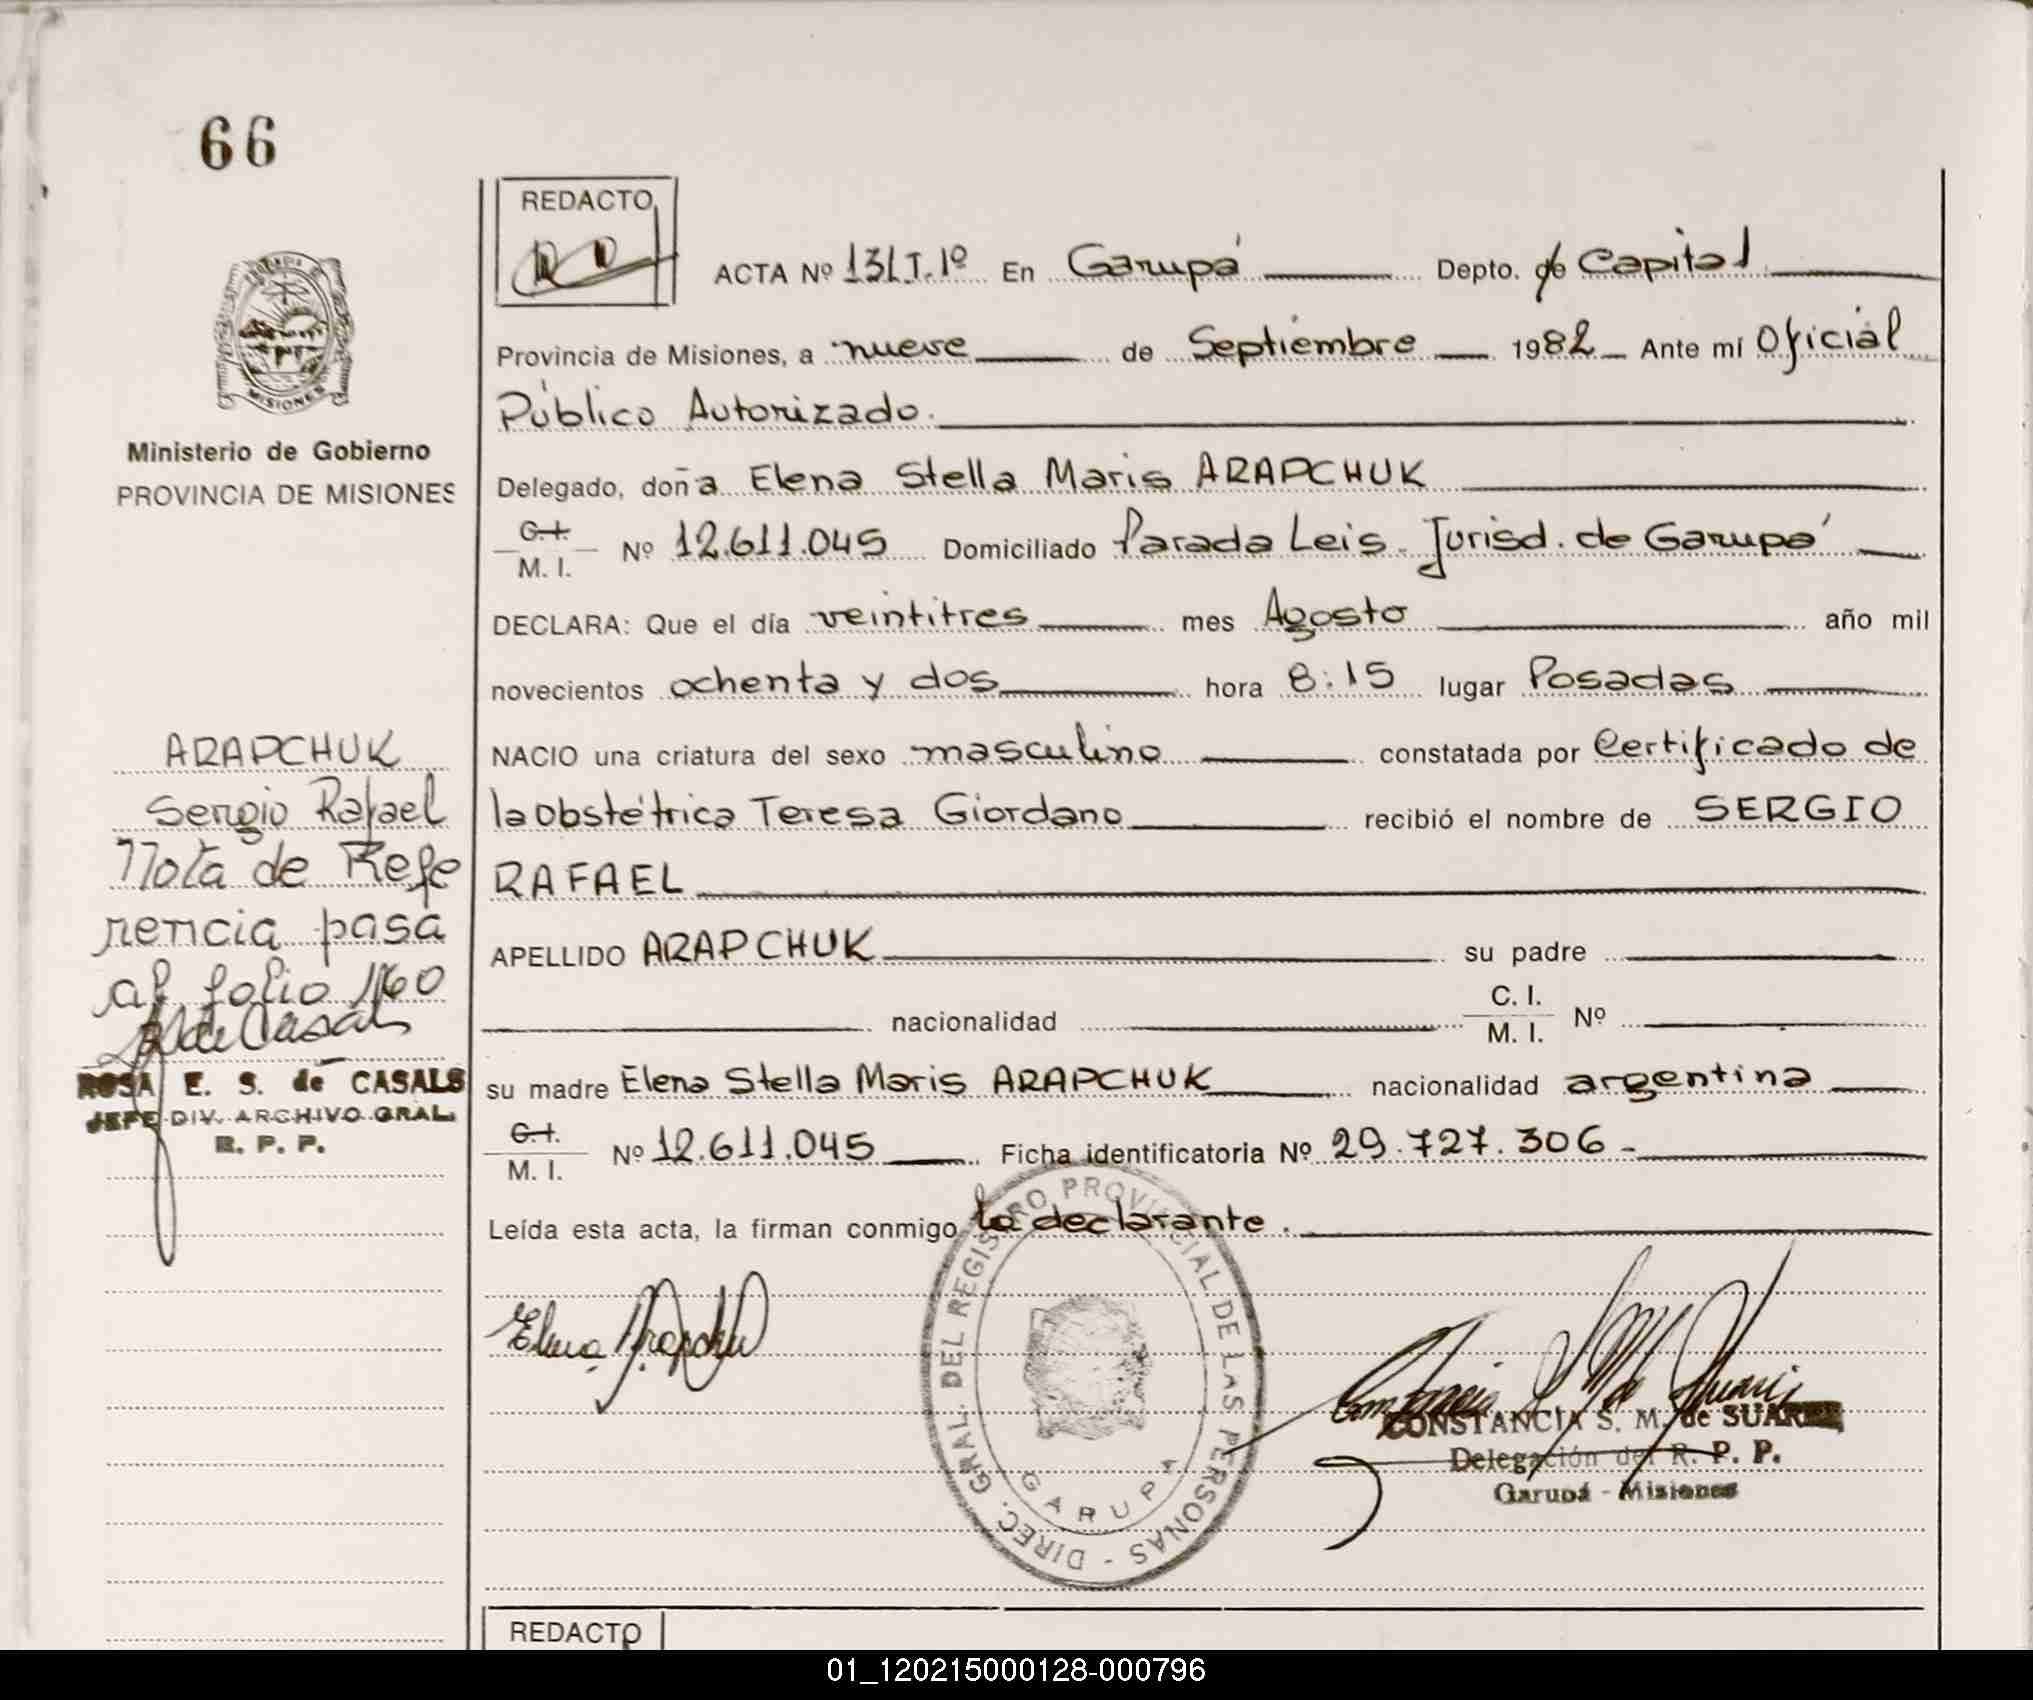 66
REDACTO
ACTA Nº 131 T. 1º En Garupá Depto. de Capital
Provincia de Misiones, a nueve de Septiembre 1982 Ante mí Oficial
Público Autorizado.
Delegado, doña Elena Stella Maris ARAPCHUK
C.I.
M. I. Nº 12.611.045 Domiciliado Parada Leis. Jurisd. de Garupá
DECLARA: Que el día veintitres mes Agosto año mil
novecientos ochenta y dos hora 8:15 lugar Posadas
NACIO una criatura del sexo masculino constatada por Certificado de
la obstétrica Teresa Giordano recibió el nombre de SERGIO
RAFAEL
APELLIDO ARAPCHUK su padre
nacionalidad C. I.
M. I. Nº
su madre Elena Stella Maris ARAPCHUK nacionalidad argentina
C.I.
M. I. Nº 12.611.045 Ficha identificatoria Nº 29.727.306 -
Leída esta acta, la firman conmigo la declarante.
MISIONES
Ministerio de Gobierno
PROVINCIA DE MISIONES
ARAPCHUK
Sergio Rafael
Nota de Refe
rencia pasa
al folio 160
de Casals
ROSA E. S. de CASALS
JEFE DIV. ARCHIVO GRAL.
R. P. P.
Elena Arapchuk
DIREC. GRAL. DEL REGISTRO PROVINCIAL DE LAS PERSONAS -
GARUPA
Constancia S. M. de Suarez
CONSTANCIA S. M. de SUAREZ
Delegación del R. P. P.
Garupá - Misiones
REDACTO
01_120215000128-000796